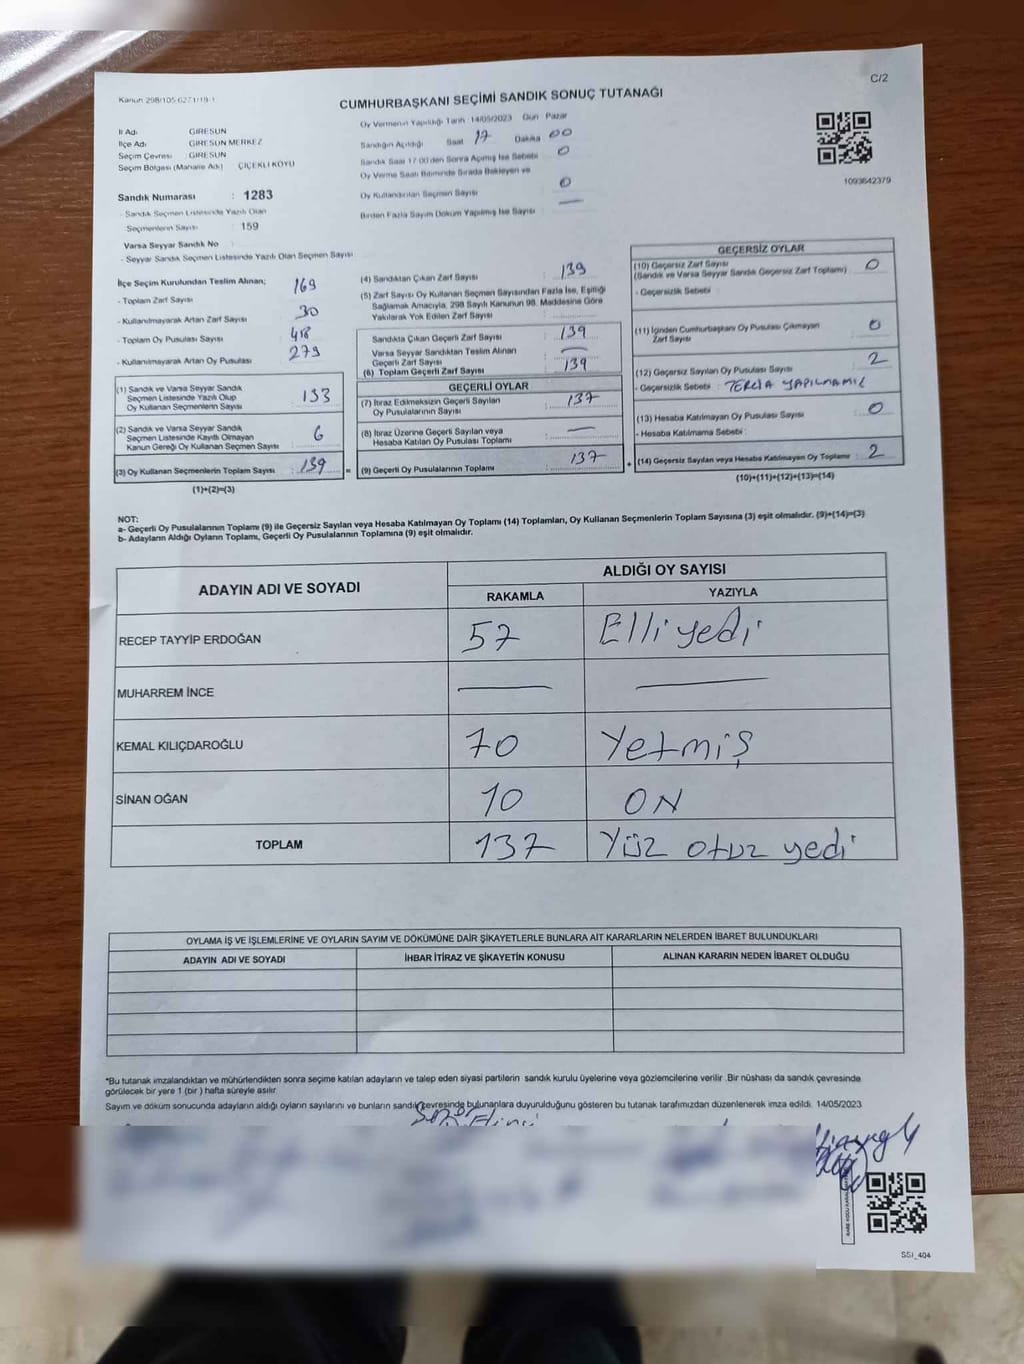 C/2
Kanun 298/105-6271/19-1
CUMHURBAŞKANI SEÇİMİ SANDIK SONUÇ TUTANAĞI
İl Adı GİRESUN
İlçe Adı GİRESUN MERKEZ
Seçim Çevresi GİRESUN
Seçim Bölgesi (Mahalle Adı) ÇİÇEKLİ KÖYÜ
Sandık Numarası : 1283
- Sandık Seçmen Listesinde Yazılı Olan
Seçmenlerin Sayısı : 159
Varsa Seyyar Sandık No
- Seyyar Sandık Seçmen Listesinde Yazılı Olan Seçmen Sayısı
Oy Vermenin Yapıldığı Tarih 14/05/2023 Gün Pazar
Sandığın Açıldığı Saat 17 Dakika 00
Sandık Saat 17:00'den Sonra Açılmış İse Sebebi 0
Oy Verme Saati Bitiminde Sırada Bekleyen ve
Oy Kullandırılan Seçmen Sayısı 0
Birden Fazla Sayım Döküm Yapılmış İse Sayısı —
1093642379
İlçe Seçim Kurulundan Teslim Alınan;
- Toplam Zarf Sayısı 169
- Kullanılmayarak Artan Zarf Sayısı 30
- Toplam Oy Pusulası Sayısı 418
- Kullanılmayarak Artan Oy Pusulası 279
(1) Sandık ve Varsa Seyyar Sandık
Seçmen Listesinde Yazılı Olup
Oy Kullanan Seçmenlerin Sayısı : 133
(2) Sandık ve Varsa Seyyar Sandık
Seçmen Listesinde Kayıtlı Olmayan
Kanun Gereği Oy Kullanan Seçmen Sayısı 6
(3) Oy Kullanan Seçmenlerin Toplam Sayısı : 139 =
(1)+(2)=(3)
(4) Sandıktan Çıkan Zarf Sayısı : 139
(5) Zarf Sayısı Oy Kullanan Seçmen Sayısından Fazla İse, Eşitliği
Sağlamak Amacıyla, 298 Sayılı Kanunun 98. Maddesine Göre
Yakılarak Yok Edilen Zarf Sayısı
Sandıkta Çıkan Geçerli Zarf Sayısı : 139
Varsa Seyyar Sandıktan Teslim Alınan
Geçerli Zarf Sayısı —
(6) Toplam Geçerli Zarf Sayısı 139
GEÇERLİ OYLAR
(7) İtiraz Edilmeksizin Geçerli Sayılan
Oy Pusulalarının Sayısı : 137
(8) İtiraz Üzerine Geçerli Sayılan veya
Hesaba Katılan Oy Pusulası Toplamı : —
(9) Geçerli Oy Pusulalarının Toplamı : 137 +
GEÇERSİZ OYLAR
(10) Geçersiz Zarf Sayısı
(Sandık ve Varsa Seyyar Sandık Geçersiz Zarf Toplamı) 0
- Geçersizlik Sebebi :
(11) İçinden Cumhurbaşkanı Oy Pusulası Çıkmayan
Zarf Sayısı 0
(12) Geçersiz Sayılan Oy Pusulası Sayısı 2
- Geçersizlik Sebebi : TERCİH YAPILMAMIŞ
(13) Hesaba Katılmayan Oy Pusulası Sayısı 0
- Hesaba Katılmama Sebebi :
(14) Geçersiz Sayılan veya Hesaba Katılmayan Oy Toplamı : 2
(10)+(11)+(12)+(13)=(14)
NOT:
a- Geçerli Oy Pusulalarının Toplamı (9) ile Geçersiz Sayılan veya Hesaba Katılmayan Oy Toplamı (14) Toplamları, Oy Kullanan Seçmenlerin Toplam Sayısına (3) eşit olmalıdır. (9)+(14)=(3)
b- Adayların Aldığı Oyların Toplamı, Geçerli Oy Pusulalarının Toplamına (9) eşit olmalıdır.
ADAYIN ADI VE SOYADI ALDIĞI OY SAYISI
RAKAMLA YAZIYLA
RECEP TAYYİP ERDOĞAN 57 Elli yedi
MUHARREM İNCE — —
KEMAL KILIÇDAROĞLU 70 Yetmiş
SİNAN OĞAN 10 ON
TOPLAM 137 Yüz otuz yedi
OYLAMA İŞ VE İŞLEMLERİNE VE OYLARIN SAYIM VE DÖKÜMÜNE DAİR ŞİKAYETLERLE BUNLARA AİT KARARLARIN NELERDEN İBARET BULUNDUKLARI
ADAYIN ADI VE SOYADI İHBAR İTİRAZ VE ŞİKAYETİN KONUSU ALINAN KARARIN NEDEN İBARET OLDUĞU
*Bu tutanak imzalandıktan ve mühürlendikten sonra seçime katılan adayların ve talep eden siyasi partilerin sandık kurulu üyelerine veya gözlemcilerine verilir .Bir nüshası da sandık çevresinde
görülecek bir yere 1 (bir ) hafta süreyle asılır.
Sayım ve döküm sonucunda adayların aldığı oyların sayılarını ve bunların sandık çevresinde bulunanlara duyurulduğunu gösteren bu tutanak tarafımızdan düzenlenerek imza edildi. 14/05/2023
SSİ_404